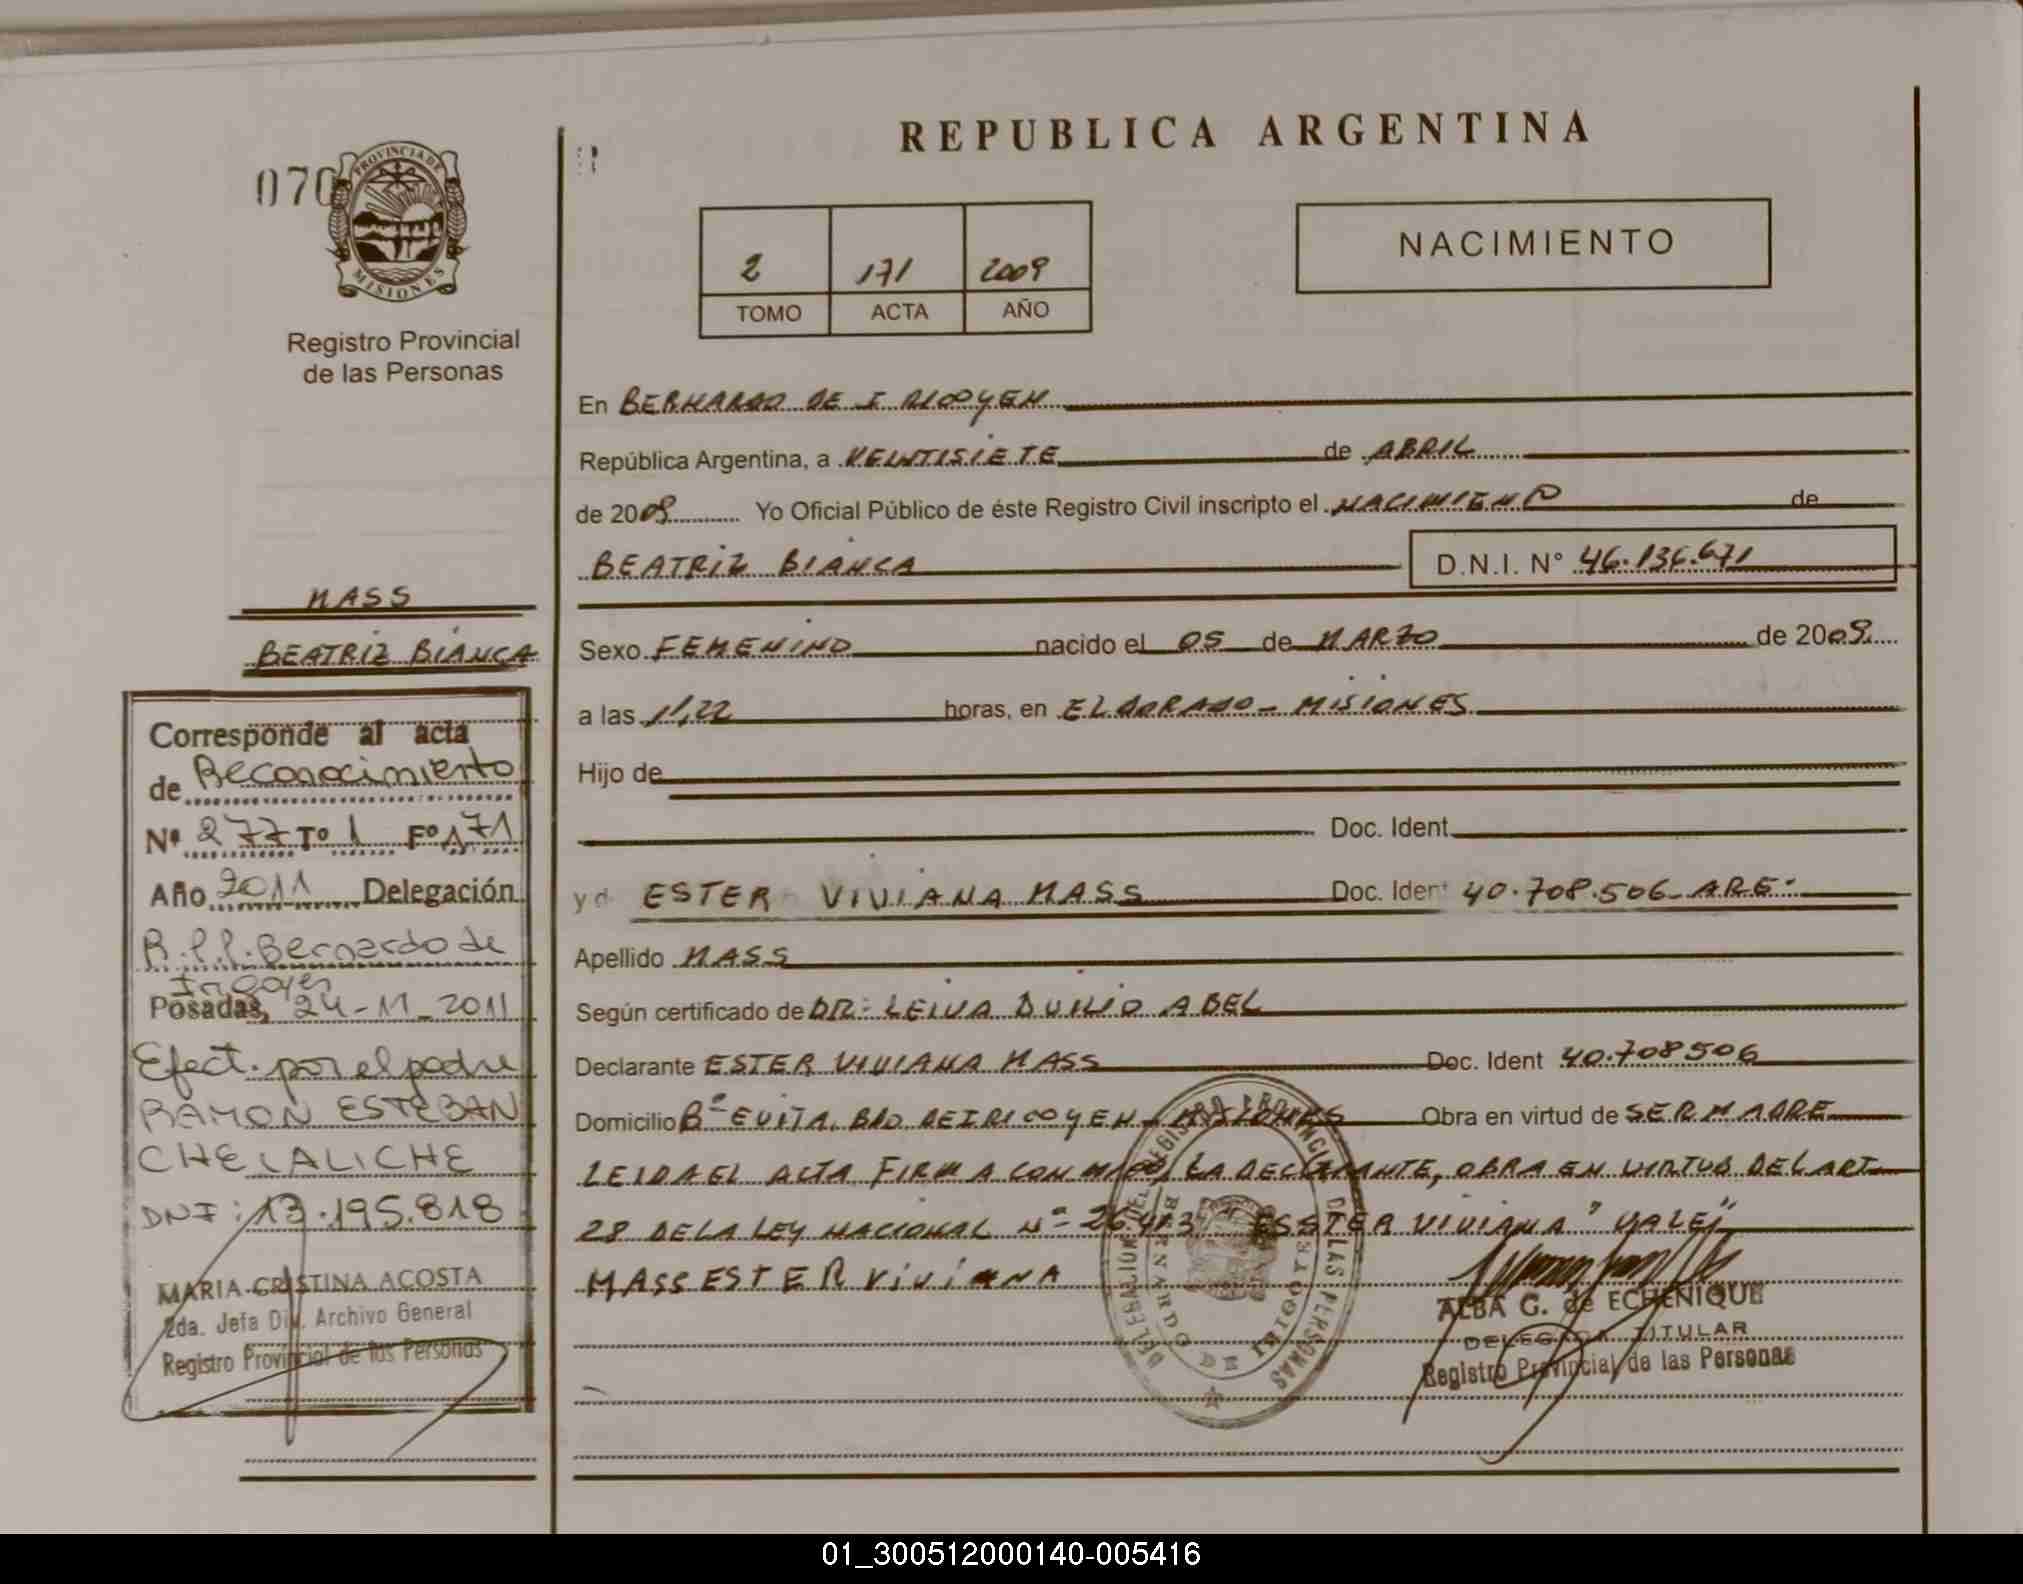 REPUBLICA ARGENTINA
070
PROVINCIA DE
MISIONES
Registro Provincial
de las Personas
2 171 2009
TOMO ACTA AÑO
NACIMIENTO
En BERNARDO DE IRIGOYEN
República Argentina, a VEINTISIETE de ABRIL
de 2009 Yo Oficial Público de éste Registro Civil inscripto el NACIMIENTO de
BEATRIZ BIANCA D.N.I. N° 46.136.671
Sexo FEMENINO nacido el 05 de MARZO de 2009
a las 11,22 horas, en ELDORADO - MISIONES
Hijo de
Doc. Ident.
y d ESTER VIVIANA MASS Doc. Ident 40.708.506 ARG.
Apellido MASS
Según certificado de DR. LEIVA DUILIO ABEL
Declarante ESTER VIVIANA MASS Doc. Ident 40.708506
Domicilio Bº EVITA. BDO DE IRIGOYEN - MISIONES Obra en virtud de SER MADRE
LEIDA EL ACTA FIRMA CON MIGO, LA DECLARANTE, OBRA EN VIRTUD DEL ART
28 DE LA LEY NACIONAL Nº 26.413 " ESSTER VIVIANA" VALE"
MASS ESTER ViViANA
DELEGACION DEL REGISTRO PROVINCIAL DE LAS PERSONAS
BERNARDO DE IRIGOYEN
ALBA G. de ECHENIQUE
DELEGADA TITULAR
Registro Provincial de las Personas
MASS
BEATRIZ BIANCA
Corresponde al acta
de Reconocimiento
Nº 277 Tº 1 Fº 171
Año 2011 Delegación
R.P.P. Bernardo de
Irigoyen
Posadas, 24-11-2011
Efect. por el padre
RAMON ESTEBAN
CHELALICHE
DNI: 13.195.818
MARIA CRISTINA ACOSTA
2da. Jefa Div. Archivo General
Registro Provincial de las Personas
01_300512000140-005416